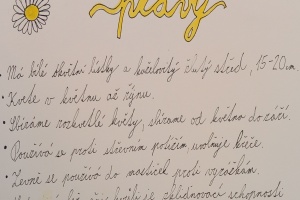 pravý
• Má bílé okvětní lístky a kuželovitý žlutý střed, 15-20cm.
• Kvete v květnu až říjnu.
• Sbíráme rozkvetlé květy, sbíráme od května do září.
• Používá se proti střevním potížím, uvolňuje křeče.
• Zevně se používá do mastiček proti vyrážkám.
zklidňovací schopnosti